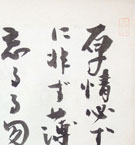 厚情必ず
に非ず薄
忘るる勿